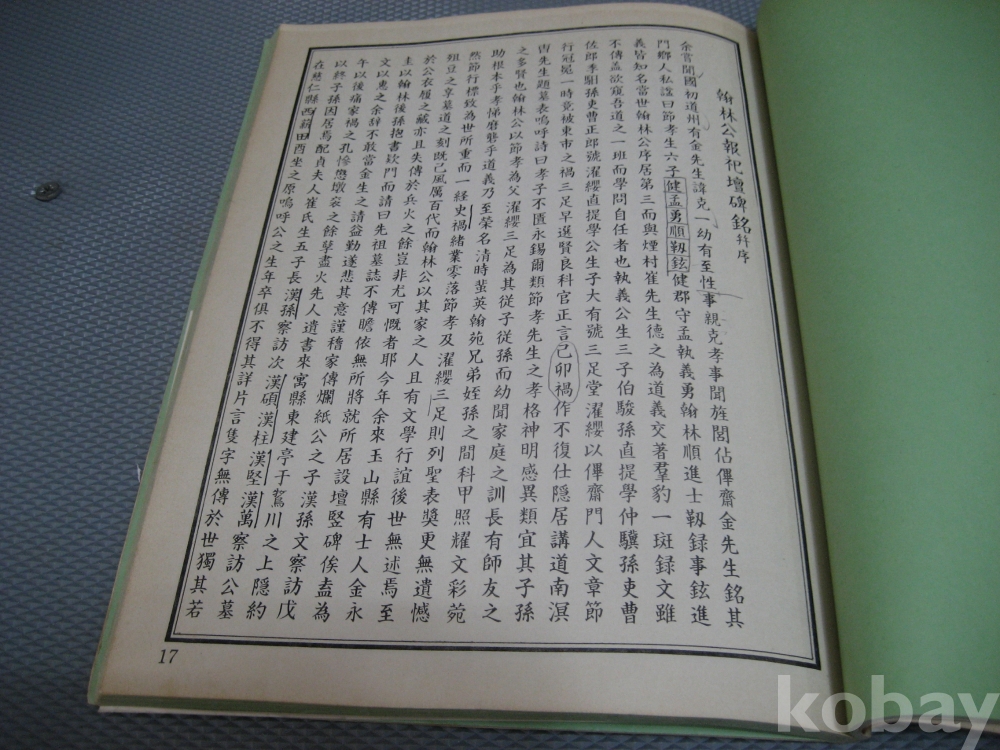 翰林公報祀壇碑銘 幷序
余嘗聞國初道州有金先生諱克一幼有至性事親克孝事聞旌閭佔俾齋金先生銘其
門鄉人私諡曰節孝生六子健孟勇順靱鉉健郡守孟執義勇翰林順進士靱録事鉉進
義皆知名當世翰林公序居第三而與煙村崔先生德之為道義交著羣豹一斑録文雖
不傳孟欲窺吾道之一班而學問自任者也執義公生三子伯駿孫直提學仲驥孫吏曹
佐郎季馹孫吏曹正郎號濯纓直提學公生子大有號三足堂濯纓以俾齋門人文章節
行冠冕一時竟被東市之禍三足早選賢良科官正言己卯禍作不復仕隱居講道南溟
曺先生題墓表嗚呼詩曰孝子不匱永錫爾類節孝先生之孝格神明感異類宜其子孫
之多賢也翰林公以節孝為父濯纓三足為其從子從孫而幼聞家庭之訓長有師友之
助根本乎孝悌磨礱乎道義乃至榮名清時蜚英翰苑兄弟姪孫之間科甲照耀文彩菀
然節行標致為世所重而一経史禍緒業零落節孝及濯纓三足則列聖表奬更無遺憾
俎豆之享墓道之刻既已風厲百代而翰林公以其家之人且有文學行誼後世無述焉至
於公衣履之藏亦且失傳於兵火之餘豈非尤可慨者耶今年余來玉山縣有士人金永
圭以翰林後孫抱書欵門而請曰先祖墓誌不傳瞻依無所將就所居設壇竪碑俟盍為
文以惠之余辞不敢當金生之請益勤遂悲其意謹稽家傳爛紙公之子漢孫文察訪戊
午以後痛家禍之孔慘憊墩衮之餘孽盡火先人遺書來寓縣東建亭于鴛川之上隱約
以終子孫因居焉配貞夫人崔氏生五子長漢孫察訪次漢碩漢柱漢堅漢萬察訪公墓
在慈仁縣西薪田酉坐之原嗚呼公之生年卒俱不得其詳片言隻字無傳於世獨其若
17
kobay